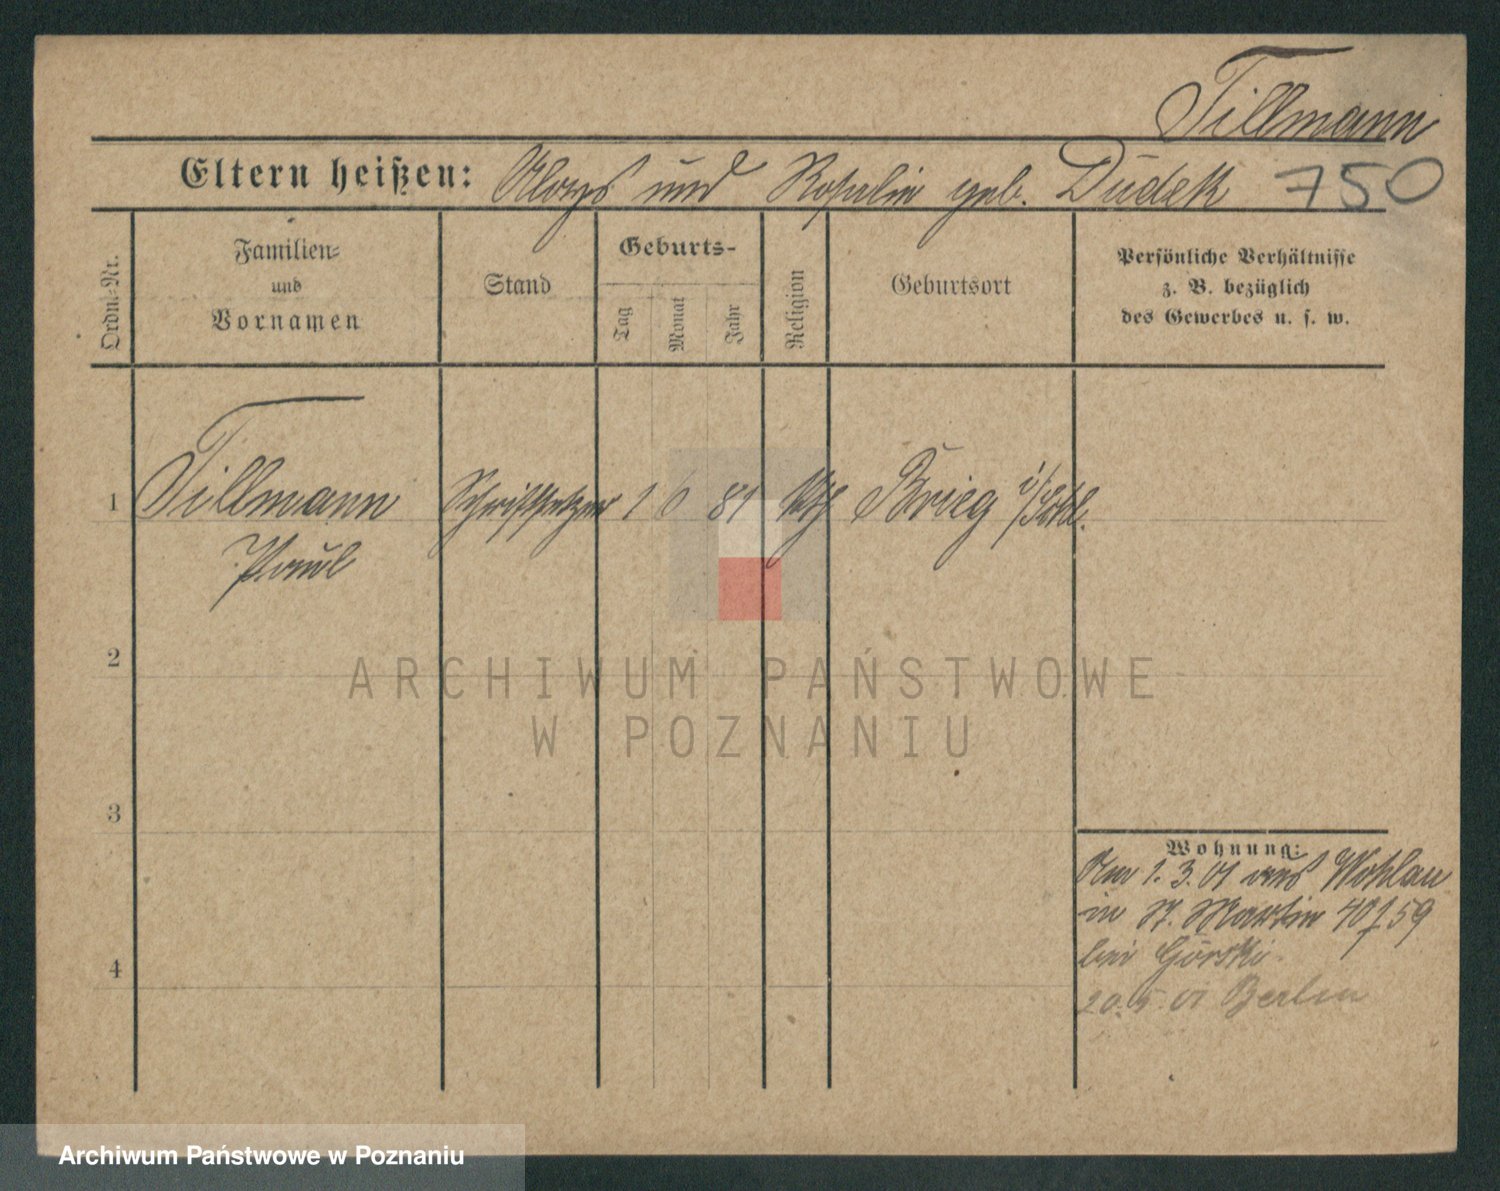 Tillmann
Eltern heißen: Aloys und Rosalie geb. Dudek 750
Ordn.-Nr.
Familien-
und
Vornamen
Stand
Geburts-
Tag
Monat
Jahr
Religion
Geburtsort
Persönliche Verhältnisse
z. B. bezüglich
des Gewerbes u. s. w.
1 Tillmann Schriftsetzer 1 6 81 kth Brieg i/Schl.
Paul
2
ARCHIWUM PAŃSTWOWE
W POZNANIU
3
Wohnung:
Am 1.3.01 aus Wohlau
in St. Martin 40/59
bei Górski.
4
20.5.01 Berlin
Archiwum Państwowe w Poznaniu